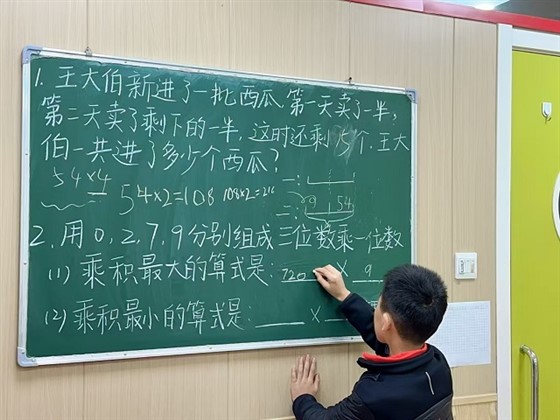 1. 王大伯新进了一批西瓜. 第一天卖了一半,
第二天卖了剩下的一半, 这时还剩 个. 王大
伯一共进了多少个西瓜?
54×4
54×2=108 108×2=216
一:
二: 54
2. 用0, 2, 7, 9分别组成三位数乘一位数
(1) 乘积最大的算式是: 720 × 9
(2) 乘积最小的算式是: ____ × __